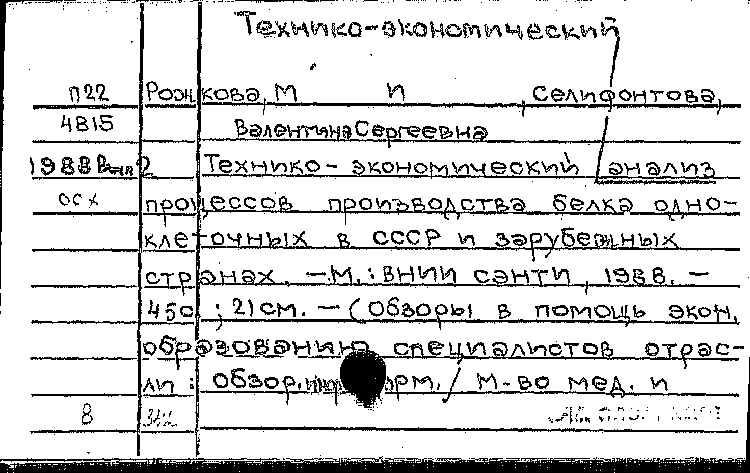 Технико-экономический
П22 Рожкова, М И , Селифонтова,
4В15 Валентина Сергеевна
1988 2 Технико-экономический анализ
осх процессов производства белка одно-
клеточных в СССР и зарубежных
странах. — М.: ВНИИСЭНТИ, 1988. —
45с ; 21 см. — (Обзоры в помощь экон.
образованию специалистов отрас-
ли : Обзор. информ. / М-во мед. и
8